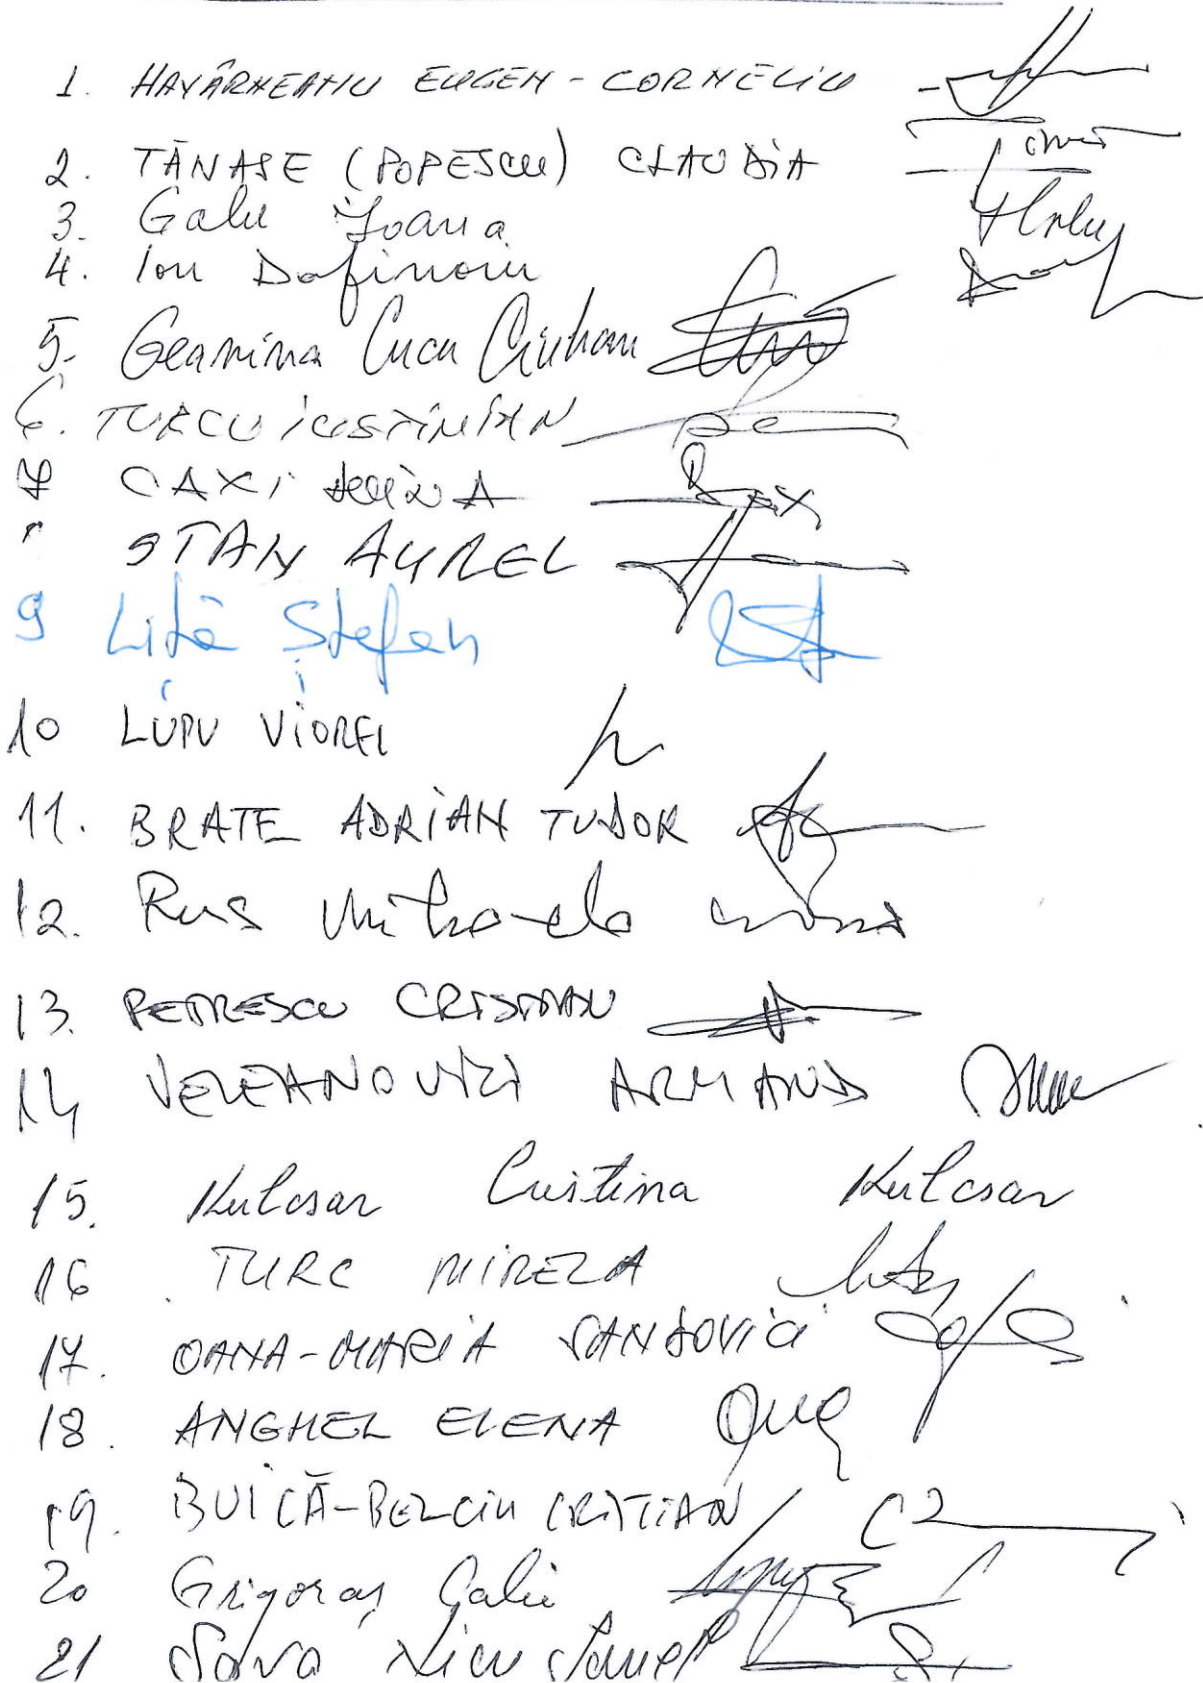 1. HAVÂRNEANU EUGEN - CORNELIU
2. TĂNASE (POPESCU) CLAUDIA
3. Galu Ioana
4. Ion Dafinoiu
5. Geanina Cucu Ciuhan
6. TURCU IUSTINIAN
7 CAXI
STAN AUREL
9 Liță Ștefan
10 LUPU VIOREL
11. BRATE ADRIAN TUDOR
12. Rus Mihaela
13. PETRESCU CRISTIAN
14 VELEANOVICI ARMAND
15. Kulcsar Cristina Kulcsar
16 TURC MIRELA
17. OANA-MARIA
18. ANGHEL ELENA
19. BUICĂ-BELCIU CRISTIAN
20 Grigoraș
21 Sava Nicu Ionel